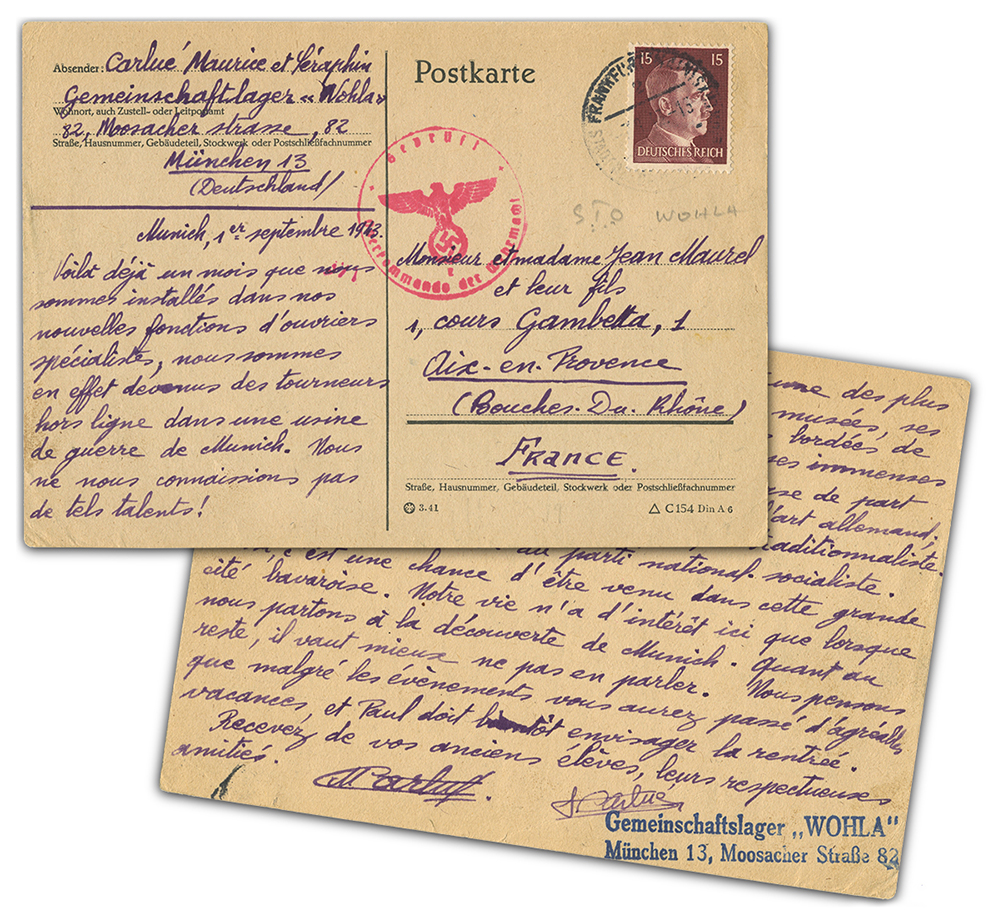 Absender: Carlué Maurice et Séraphin
Gemeinschaftlager « Wohla »
Wohnort, auch Zustell- oder Leitpostamt
82, Moosacher strasse, 82
Straße, Hausnummer, Gebäudeteil, Stockwerk oder Postschließfachnummer
München 13
(Deutschland)
Munich, 1er septembre 1943.
Voilà déjà un mois que nous
sommes installés dans nos
nouvelles fonctions d'ouvriers
spécialistes, nous sommes
en effet devenus des tourneurs
hors ligne dans une usine
de guerre de Munich. Nous
ne nous connaissions pas
de tels talents!
Postkarte
15 15
DEUTSCHES REICH
Geprüft
Oberkommando der Wehrmacht
e
STO WOHLA
Monsieur et madame Jean Maurel
et leur fils
1, cours Gambetta, 1
Aix-en-Provence
(Bouches-Du-Rhône)
FRANCE.
Straße, Hausnummer, Gebäudeteil, Stockwerk oder Postschließfachnummer
3.41
C 154 Din A 6
une des plus
musées, ses
bordées de
ses immenses
de part
l'art allemand,
traditionnaliste.
du parti national-socialiste.
c'est une chance d'être venu dans cette grande
cité bavaroise. Notre vie n'a d'intérêt ici que lorsque
nous partons à la découverte de Munich. Quant au
reste, il vaut mieux ne pas en parler. Nous pensons
que malgré les évènements vous aurez passé d'agréables
vacances, et Paul doit bientôt envisager la rentrée.
Recevez de vos anciens élèves, leurs respectueuses
amitiés.
Gemeinschaftslager „WOHLA"
München 13, Moosacher Straße 82